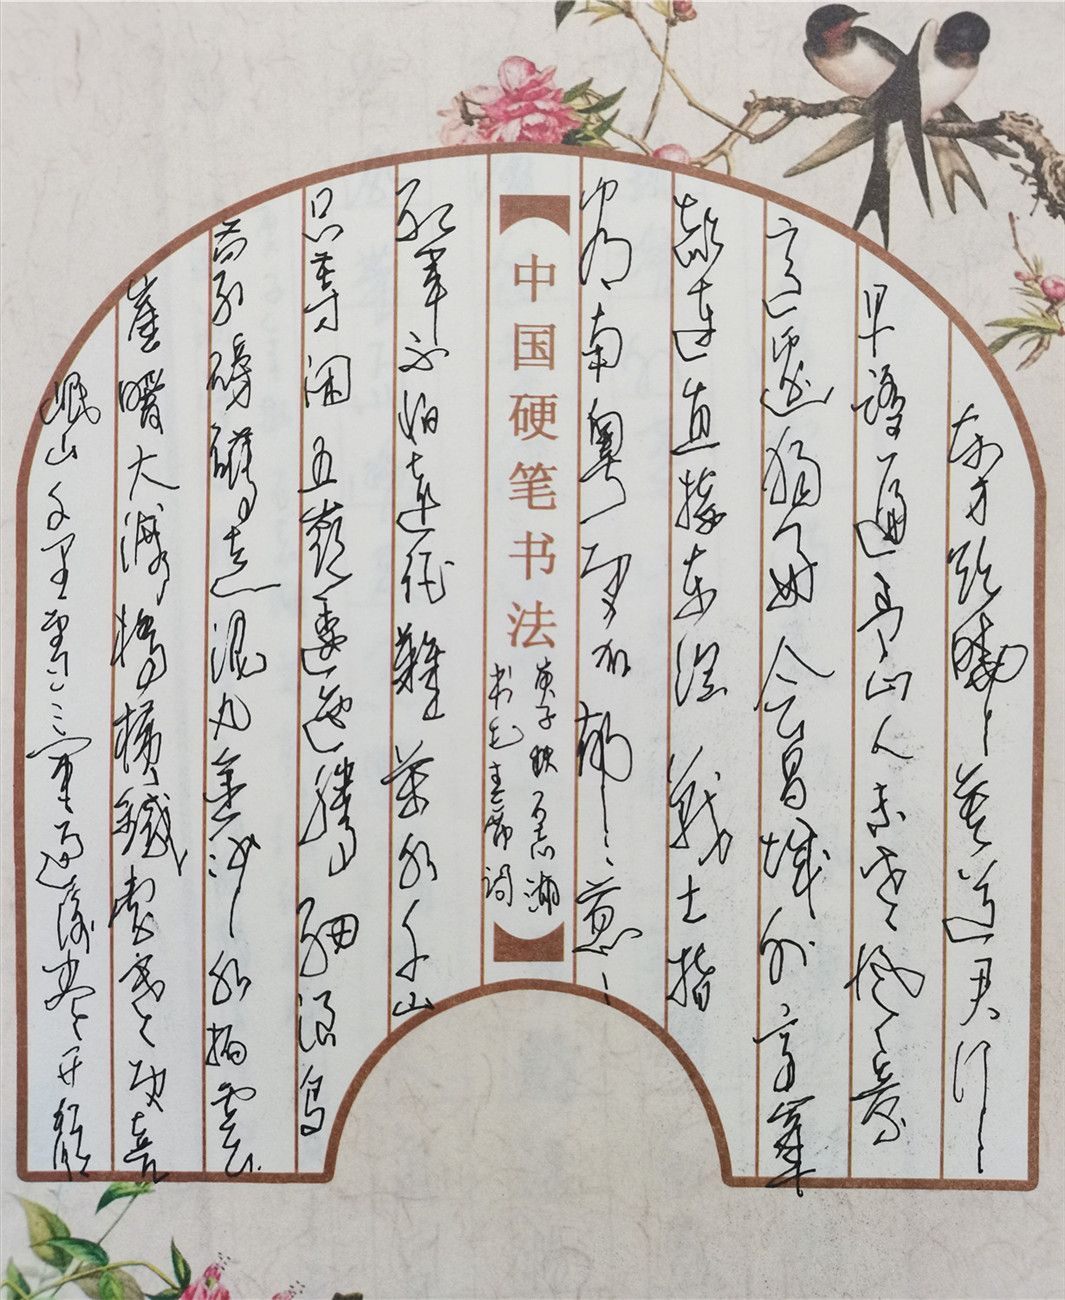 东方欲曉莫道君行
早踏遍青山人未老风景
这边獨好会昌城外高峯
颠连直接东溟战士指
看南粤更加郁郁葱葱
中国硬笔书法
庚子秋
书毛主席词
红军不怕远征難萬水千山
只等闲五嶺逶迤腾细浪乌
蒙磅礴走泥丸金沙水拍雲
崖暖大渡橋横鐵索寒更喜
岷山千里雪三军过后尽开颜